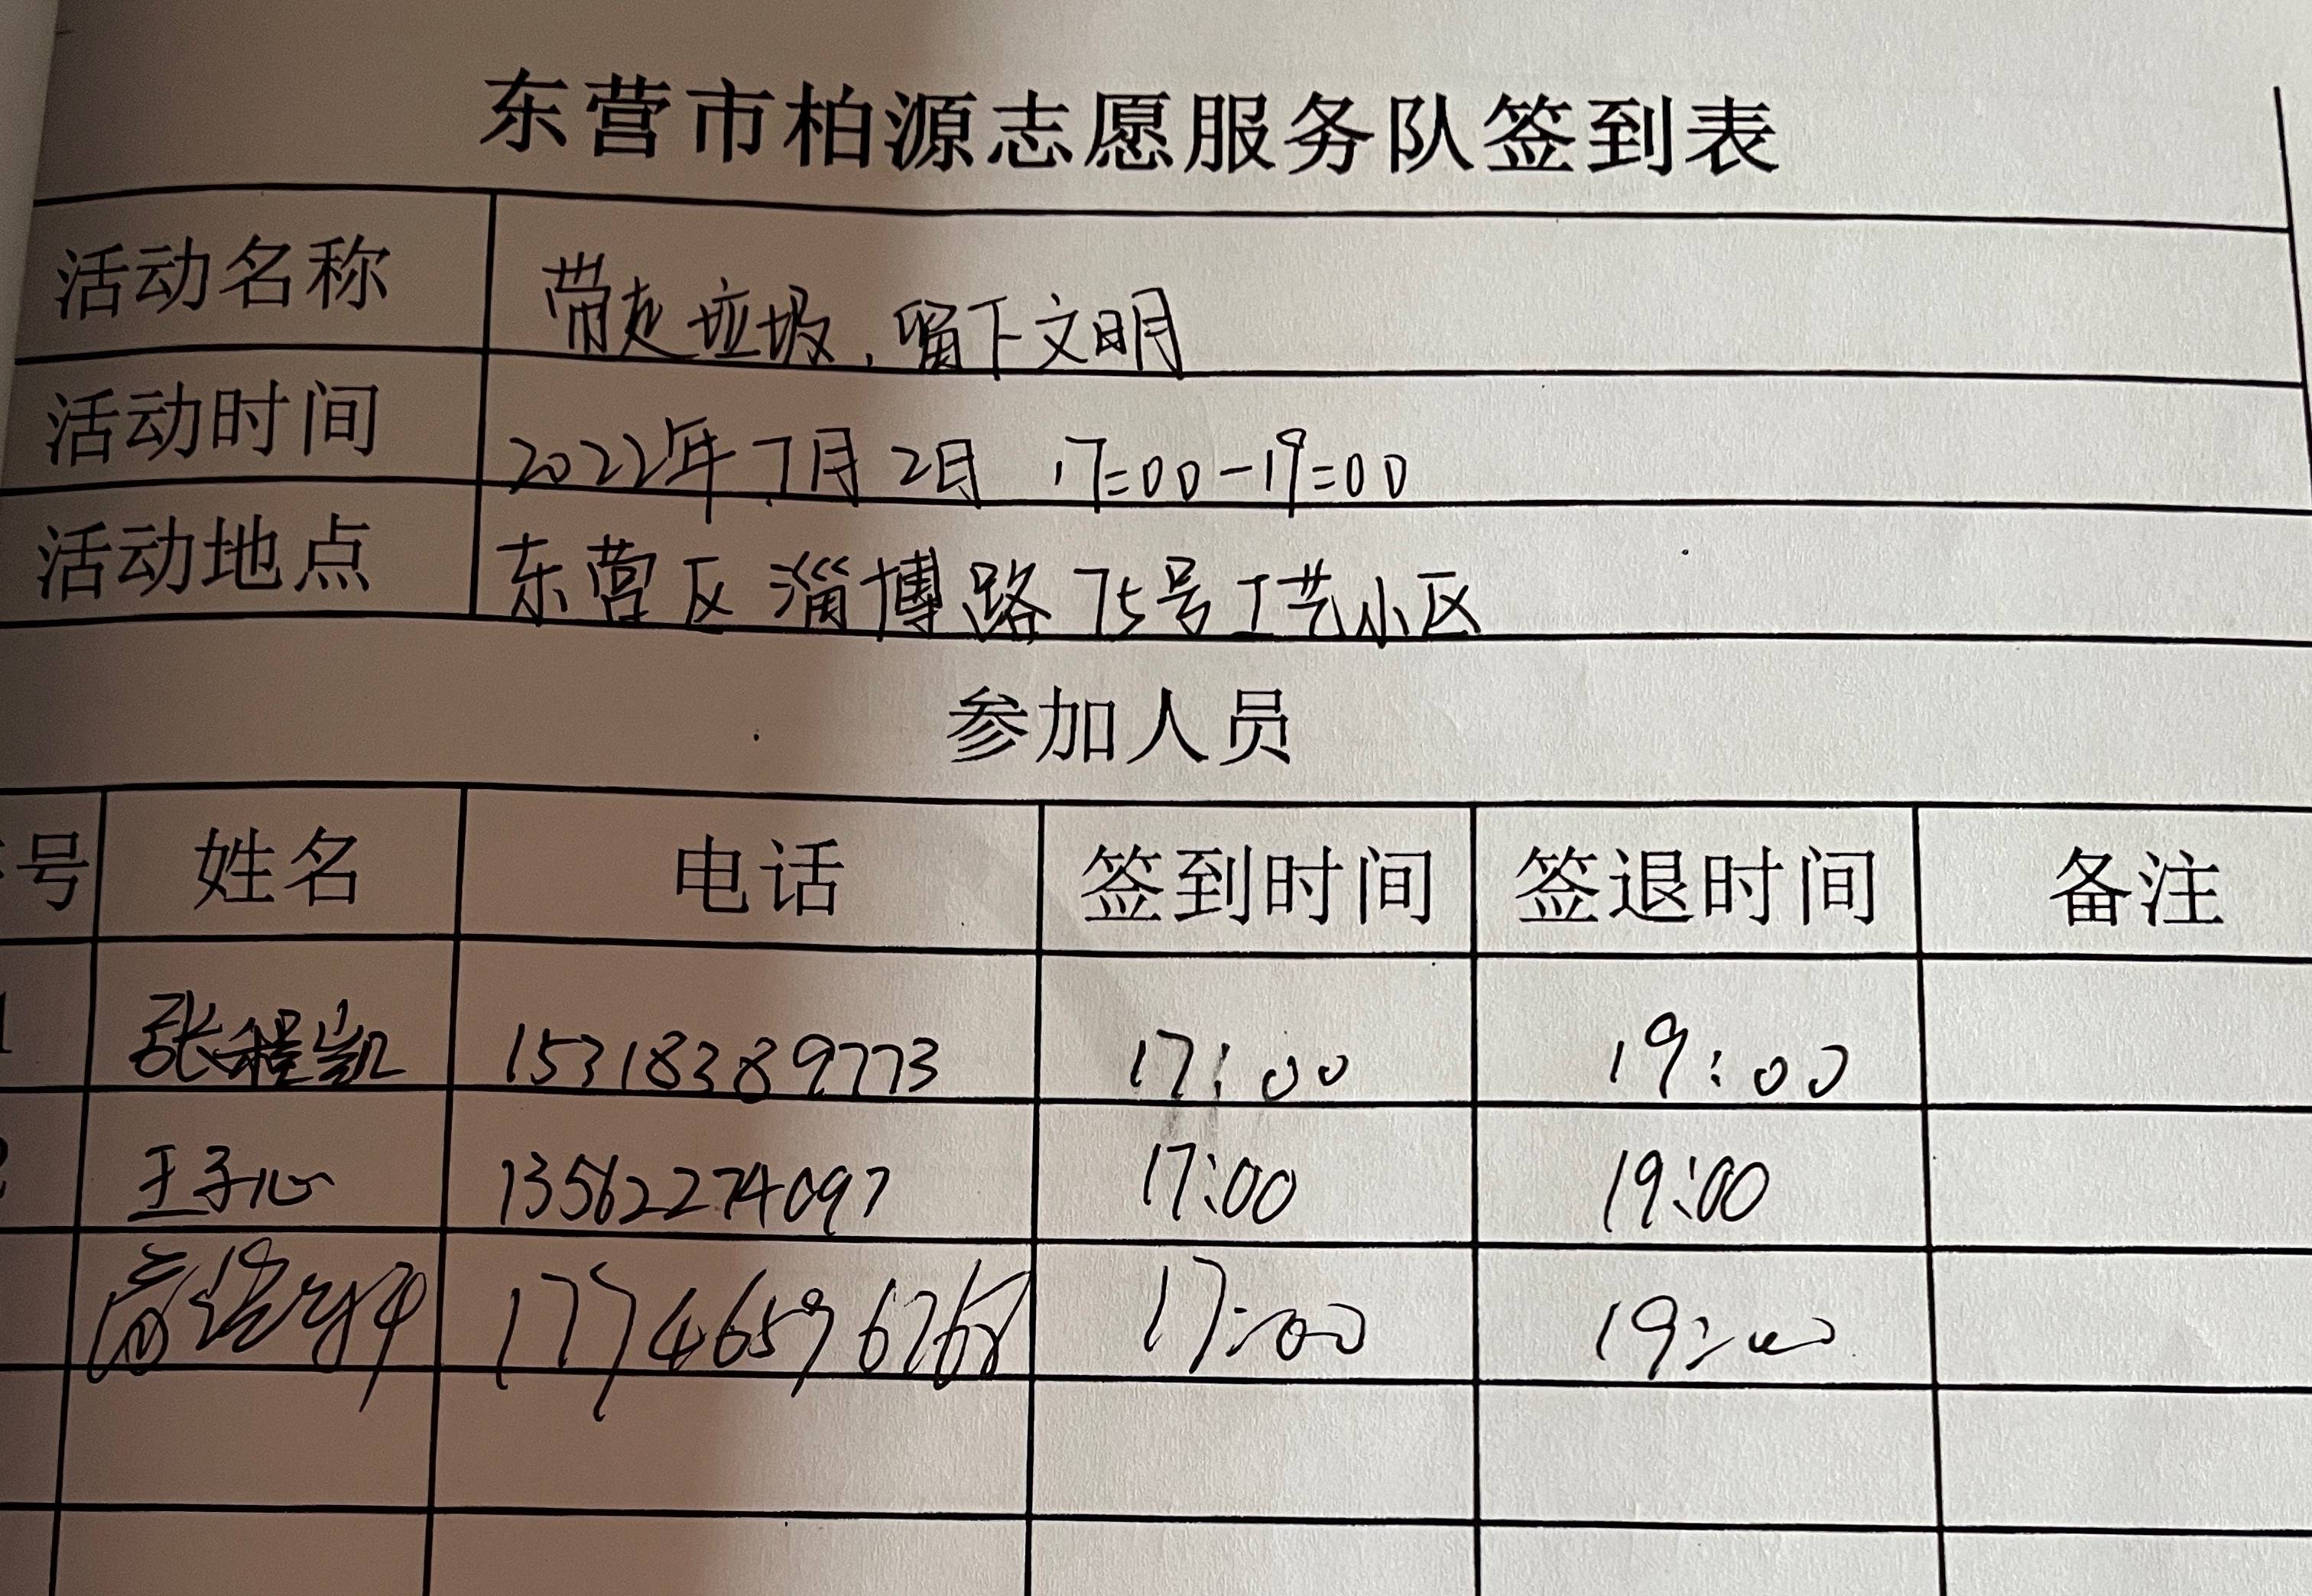 东营市柏源志愿服务队签到表
活动名称 带走垃圾,留下文明
活动时间 2022年7月2日 17:00-19:00
活动地点 东营区淄博路75号工艺小区
参加人员
号 姓名 电话 签到时间 签退时间 备注
1 张程凯 15318389773 17:00 19:00
王子心 13562274097 17:00 19:00
17746596768 17:00 19:00